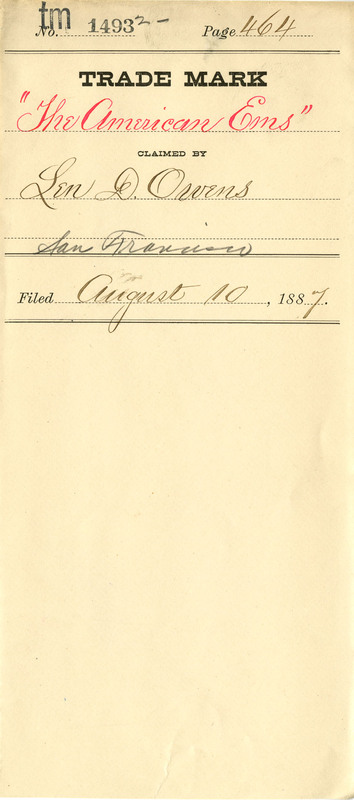 tm
No. 1493 2- Page 464
TRADE MARK
"The American Ems"
CLAIMED BY
Len D. Owens
San Francisco
Filed August 10, 1887.